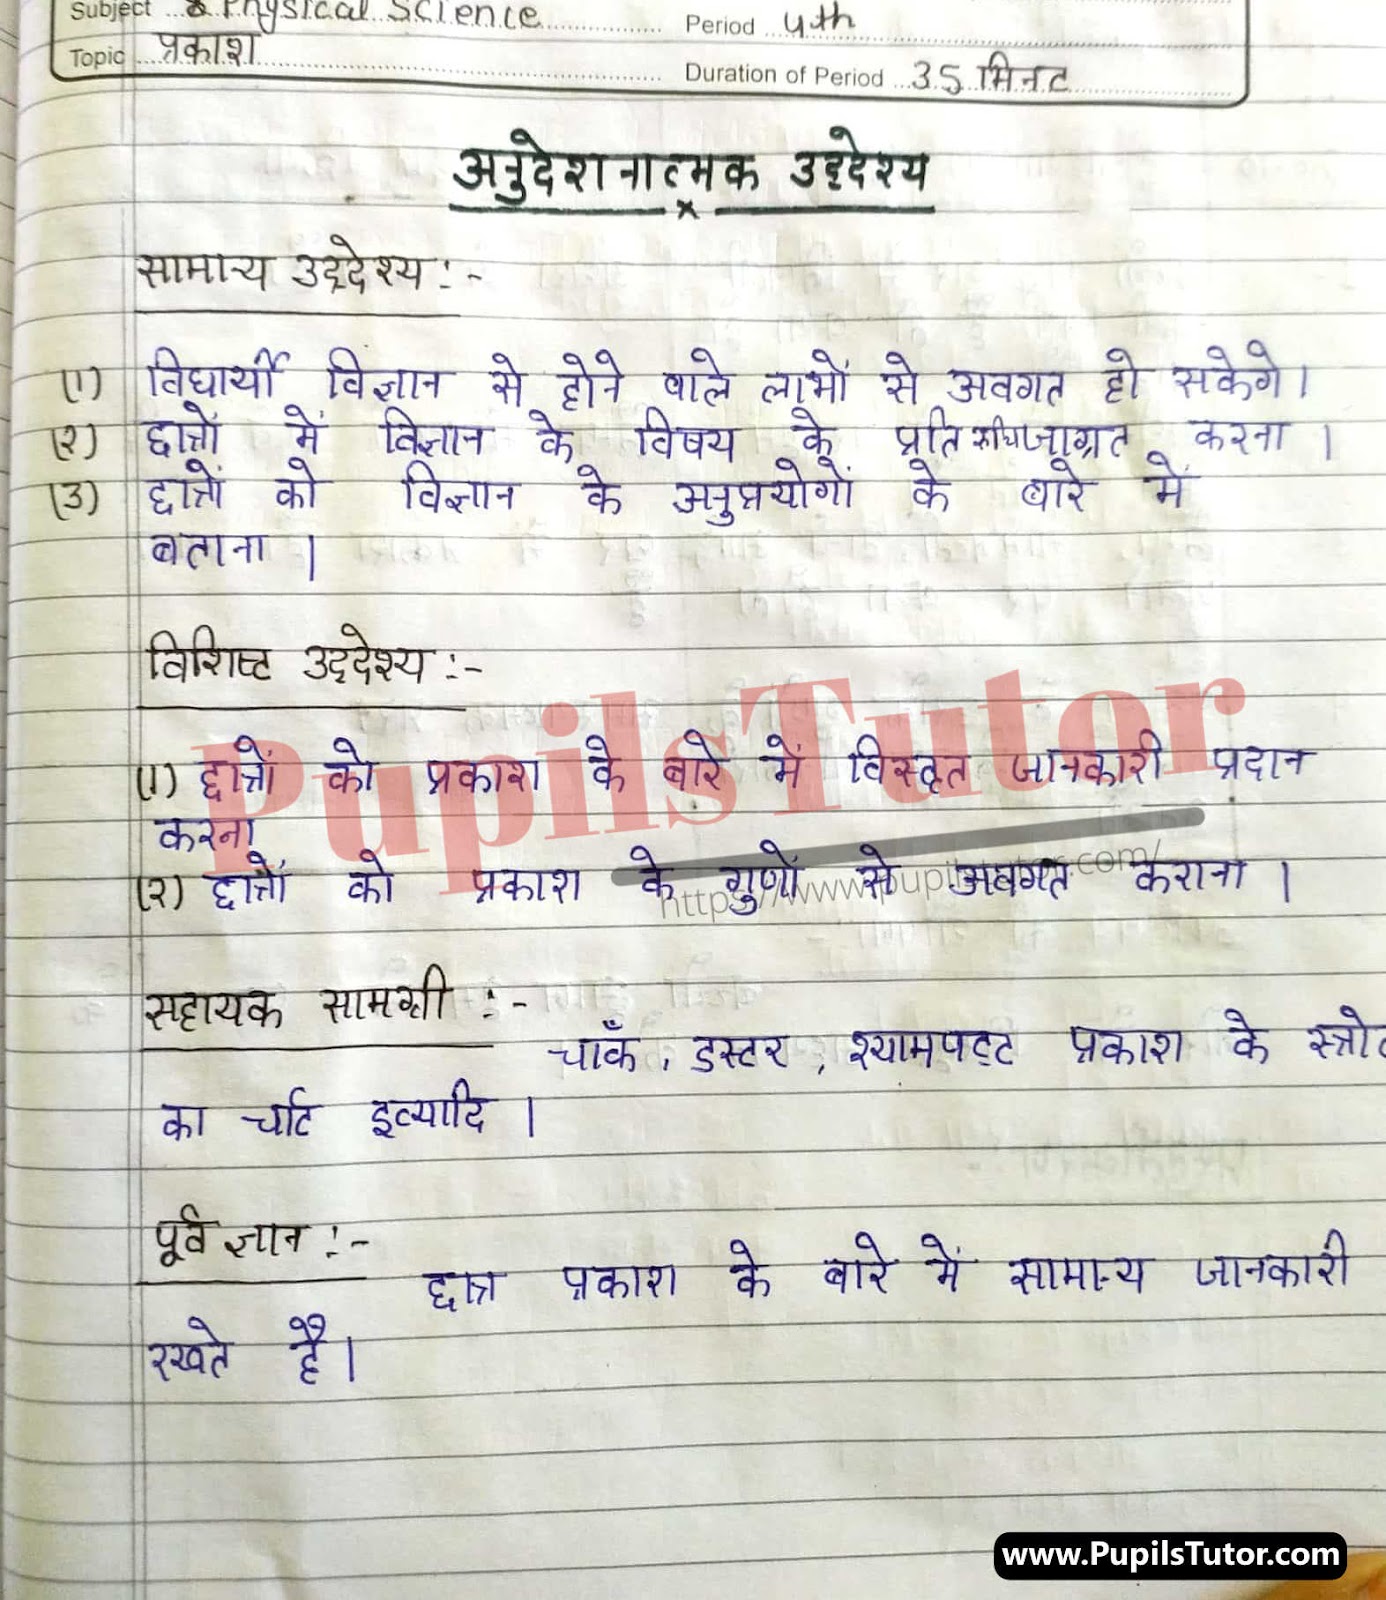 Subject Physical Science Period 4th
Topic प्रकाश Duration of Period 35 मिनट
अनुदेशनात्मक उद्देश्य
सामान्य उद्देश्य :-
(१) विधार्थी विज्ञान से होने वाले लाभों से अवगत हो सकेगे।
(२) छात्रों में विज्ञान के विषय के प्रति रूचि जाग्रत करना ।
(3) छात्रों को विज्ञान के अनुप्रयोगों के बारे में
बताना ।
विशिष्ट उद्देश्य :-
(१) छात्रों को प्रकाश के बारे में विस्तृत जानकारी प्रदान
करना
(२) छात्रों को प्रकाश के गुणों से अवगत कराना ।
PupilsTutor
https://www.pupilstutor.com/
सहायक सामग्री :-
चाँक , डस्टर , श्यामपट्ट प्रकाश के स्त्रोत
का चार्ट इत्यादि ।
पूर्व ज्ञान :-
छात्र प्रकाश के बारे में सामान्य जानकारी
रखते है।
www.PupilsTutor.com